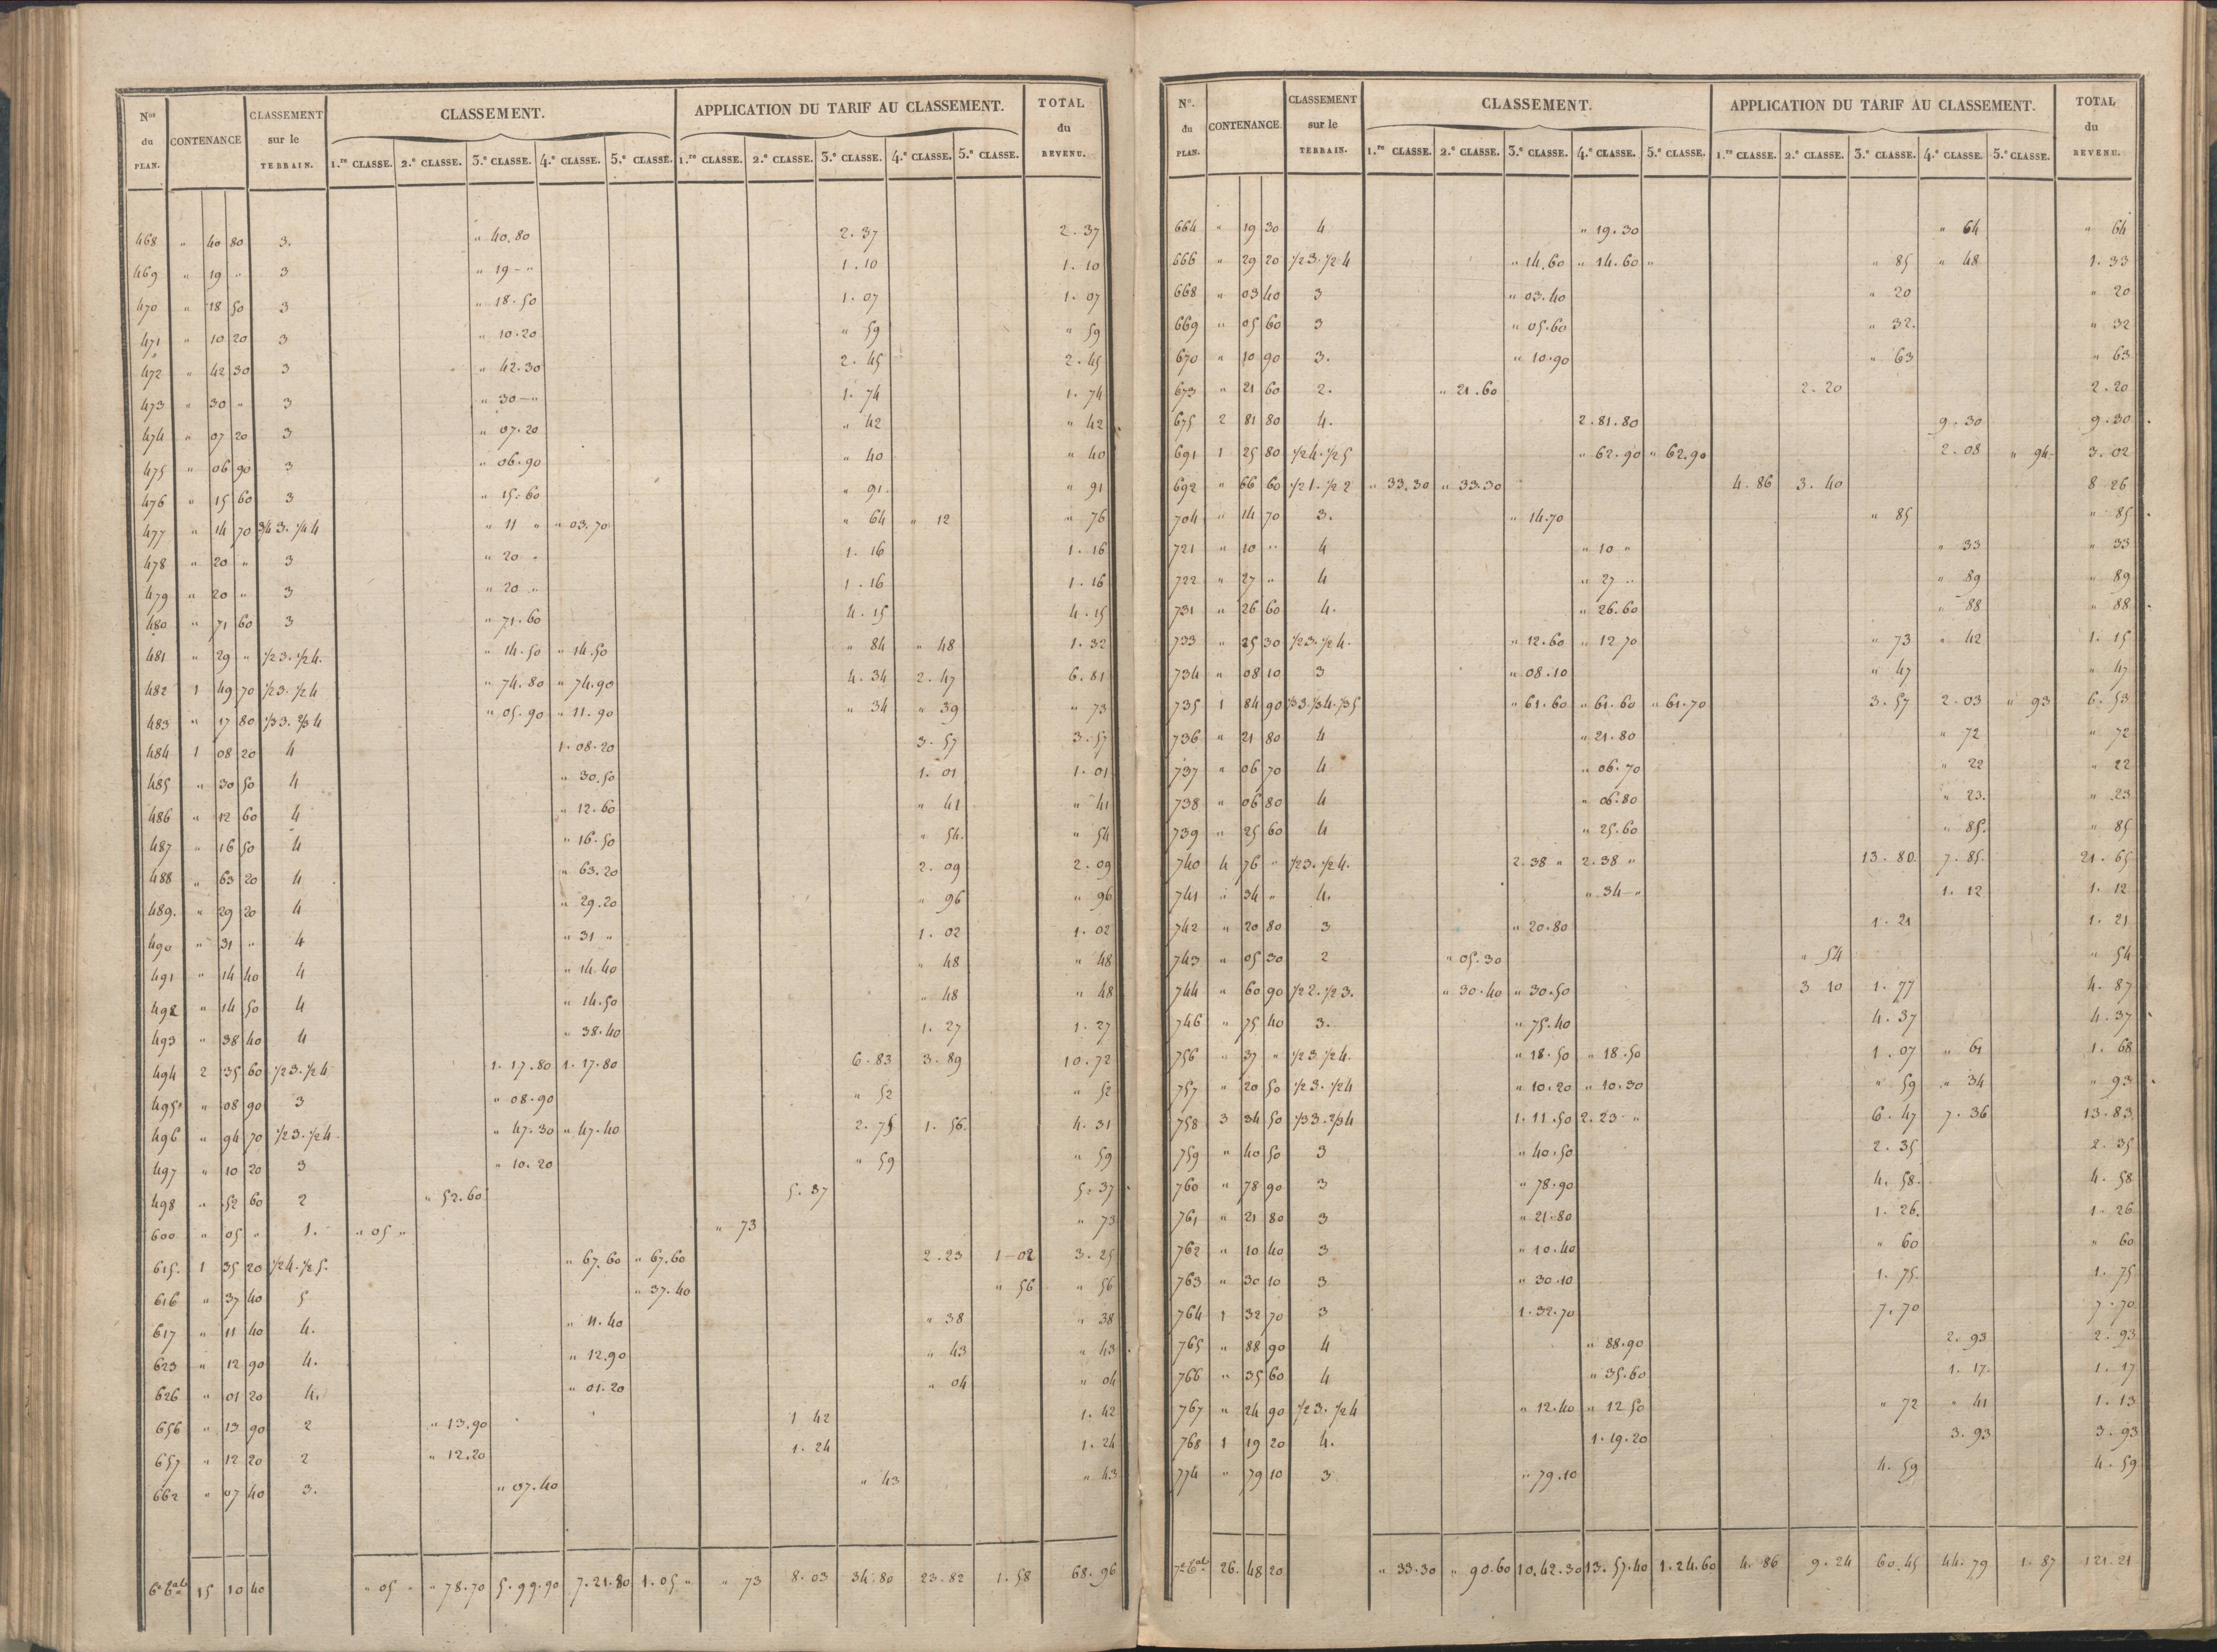 Nos du PLAN. CONTENANCE CLASSEMENT sur le TERRAIN. CLASSEMENT. APPLICATION DU TARIF AU CLASSEMENT. TOTAL du REVENU.
1.re CLASSE. 2.e CLASSE. 3.e CLASSE. 4.e CLASSE. 5.e CLASSE. 1.re CLASSE. 2.e CLASSE. 3.e CLASSE. 4.e CLASSE. 5.e CLASSE.
468 " 40 80 3. " 40.80 2. 37 2. 37
469 " 19 " 3 " 19 - " 1. 10 1. 10
470 " 18 50 3 " 18.50 1. 07 1. 07
471 " 10 20 3 " 10.20 " 59 " 59
472 " 42 30 3 " 42.30 2. 45 2. 45
473 " 30 " 3 " 30 - " 1. 74 1. 74
474 " 07 20 3 " 07.20 " 42 " 42
475 " 06 90 3 " 06.90 " 40 " 40
476 " 15 60 3 " 15.60 " 91. " 91
477 " 14 70 3/4 3. 1/4 4 " 11 " " 03.70 " 64 " 12 " 76
478 " 20 " 3 " 20 " 1. 16 1. 16
479 " 20 " 3 " 20 " 1. 16 1. 16
480 " 71 60 3 " 71.60 4. 15 4. 15
481 " 29 " 1/2 3. 1/2 4. " 14.50 " 14.50 " 84 " 48 1. 32
482 1 49 70 1/2 3. 1/2 4 " 74.80 " 74.90 4. 34 2. 47 6. 81
483 " 17 80 1/3 3. 2/3 4 " 05.90 " 11.90 " 34 " 39 " 73
484 1 08 20 4 1. 08.20 3. 57 3. 57
485 " 30 50 4 " 30.50 1. 01 1. 01
486 " 12 60 4 " 12.60 " 41 " 41
487 " 16 50 4 " 16.50 " 54. " 54
488 " 63 20 4 " 63.20 2. 09 2. 09
489. " 29 20 4 " 29.20 " 96 " 96
490 " 31 " 4 " 31 " 1. 02 1. 02
491 " 14 40 4 " 14.40 " 48 " 48
492 " 14 50 4 " 14.50 " 48 " 48
493 " 38 40 4 " 38.40 1. 27 1. 27
494 2 35 60 1/2 3. 1/2 4 1. 17.80 1. 17.80 6. 83 3. 89 10. 72
495 " 08 90 3 " 08.90 " 52 " 52
496 " 94 70 1/2 3. 1/2 4. " 47.30 " 47.40 2. 75 1. 56. 4. 31
497 " 10 20 3 " 10.20 " 59 " 59
498 " 52 60 2 " 52.60 5. 37 5. 37
600 " 05 " 1. " 05 " " 73 " 73
615. 1 35 20 1/2 4. 1/2 5. " 67.60 " 67.60 2. 23 1 - 02 3. 25
616 " 37 40 5 " 37.40 " 56 " 56
617 " 11 40 4. " 11.40 " 38 " 38
623 " 12 90 4. " 12.90 " 43 " 43
626 " 01 20 4. " 01.20 " 04 " 04
656 " 13 90 2 " 13.90 1 42 1. 42
657 " 12 20 2 " 12.20 1. 24 1. 24
662 " 07 40 3. " 07.40 " 43 " 43
6e tal 15 10 40 " 05 " " 78.70 5.99.90 7.21.80 1.05 " " 73 8. 03 34. 80 23. 82 1. 58 68. 96
No. du PLAN. CONTENANCE. CLASSEMENT sur le TERRAIN. CLASSEMENT. APPLICATION DU TARIF AU CLASSEMENT. TOTAL du REVENU.
1.re CLASSE. 2.e CLASSE. 3.e CLASSE. 4.e CLASSE. 5.e CLASSE. 1.re CLASSE. 2.e CLASSE. 3.e CLASSE. 4.e CLASSE. 5.e CLASSE.
664 " 19 30 4 " 19.30 " 64 " 64
666 " 29 20 1/2 3. 1/2 4 " 14.60 " 14.60 " " 85 " 48 1. 33
668 " 03 40 3 " 03.40 " 20 " 20
669 " 05 60 3 " 05.60 " 32. " 32
670 " 10 90 3. " 10.90 " 63 " 63
673 " 21 60 2. " 21.60 2. 20 2. 20
675 2 81 80 4. 2. 81. 80 9. 30 9. 30
691 1 25 80 1/2 4. 1/2 5 " 62.90 " 62.90 2. 08 " 94. 3. 02
692 " 66 60 1/2 1. 1/2 2 " 33.30 " 33.30 4. 86 3. 40 8 26
704 " 14 70 3. " 14.70 " 85 " 85
721 " 10 " 4 " 10 " " 33 " 33
722 " 27 " 4 " 27 " " 89 " 89
731 " 26 60 4. " 26.60 " 88 " 88
733 " 25 30 1/2 3. 1/2 4. " 12.60 " 12 70 " 73 " 42 1. 15
734 " 08 10 3 " 08.10 " 47 " 47
735 1 84 90 1/3 3. 1/3 4. 1/3 5 " 61.60 " 61.60 " 61.70 3. 57 2. 03 " 93 6. 53
736 " 21 80 4 " 21.80 " 72 " 72
737 " 06 70 4 " 06.70 " 22 " 22
738 " 06 80 4 " 06.80 " 23. " 23
739 " 25 60 4 " 25.60 " 85. " 85
740 4 76 " 1/2 3. 1/2 4. 2. 38 " 2. 38 " 13. 80. 7. 85. 21. 65
741 " 34 " 4. " 34 - " 1. 12 1. 12
742 " 20 80 3 " 20.80 1. 21 1. 21
743 " 05 30 2 " 05.30 " 54 " 54
744 " 60 90 1/2 2. 1/2 3. " 30.40 " 30.50 3 10 1. 77 4. 87
746 " 75 40 3. " 75.40 4. 37 4. 37
756 " 37 " 1/2 3 1/2 4. " 18.50 " 18.50 1. 07 " 61 1. 68
757 " 20 50 1/2 3. 1/2 4 " 10.20 " 10.30 " 59 " 34 " 93
758 3 34 50 1/3 3. 2/3 4 1. 11.50 2. 23 " 6. 47 7. 36 13. 83
759 " 40 50 3 " 40.50 2. 35 2. 35
760 " 78 90 3 " 78.90 4. 58. 4. 58
761 " 21 80 3 " 21.80 1. 26. 1. 26
762 " 10 40 3 " 10.40 " 60 " 60
763 " 30 10 3 " 30.10 1. 75. 1. 75
764 1 32 70 3 1. 32.70 7. 70 7. 70
765 " 88 90 4 " 88.90 2. 93 2. 93
766 " 35 60 4 " 35.60 1. 17. 1. 17
767 " 24 90 1/2 3. 1/2 4 " 12.40 " 12 50 " 72 " 41 1. 13
768 1 19 20 4. 1. 19.20 3. 93 3. 93
774 " 79 10 3 " 79.10 4. 59 4. 59
7e tal 26. 48 20 " 33.30 " 90.60 10.42.30 13.57.40 1.24.60 4. 86 9. 24 60. 45 44. 79 1. 87 121. 21